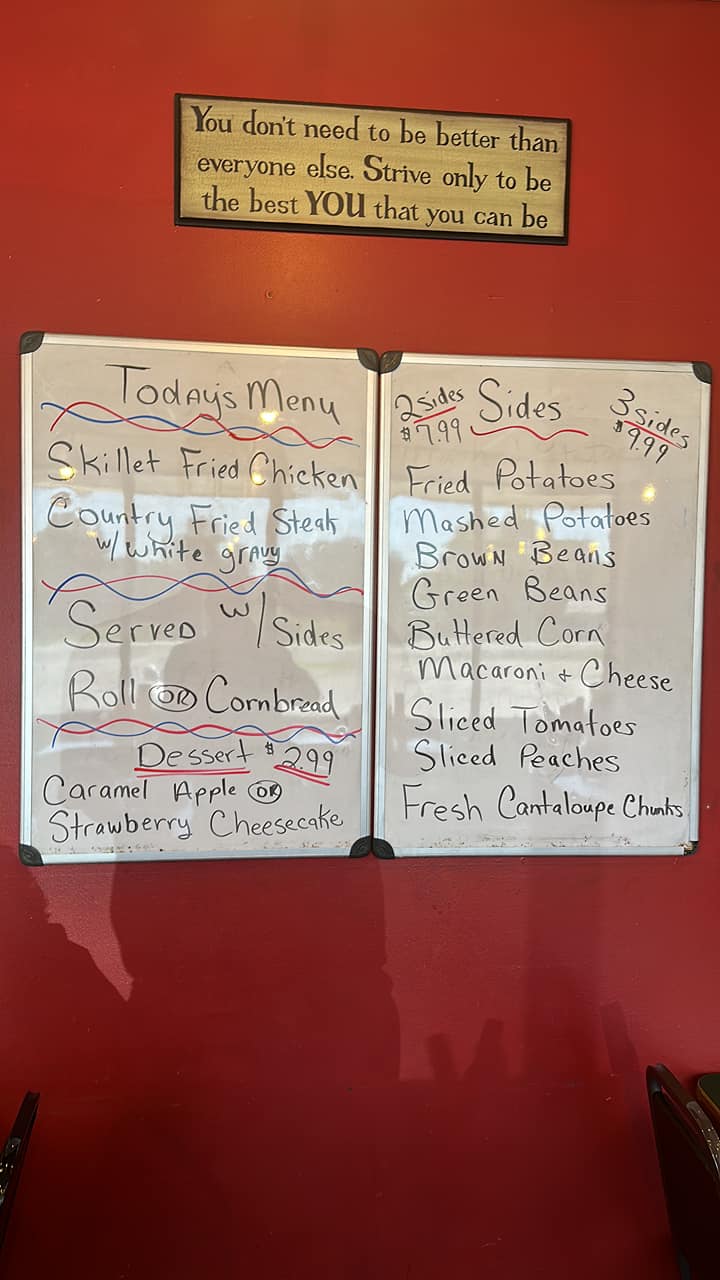 You don't need to be better than
everyone else. Strive only to be
the best YOU that you can be
Today's Menu
Skillet Fried Chicken
Country Fried Steak
w/ white gravy
Served w/ Sides
Roll OR Cornbread
Dessert $2.99
Caramel Apple OR
Strawberry Cheesecake
2 sides
$7.99
Sides
3 sides
$9.99
Fried Potatoes
Mashed Potatoes
Brown Beans
Green Beans
Buttered Corn
Macaroni + Cheese
Sliced Tomatoes
Sliced Peaches
Fresh Cantaloupe Chunks